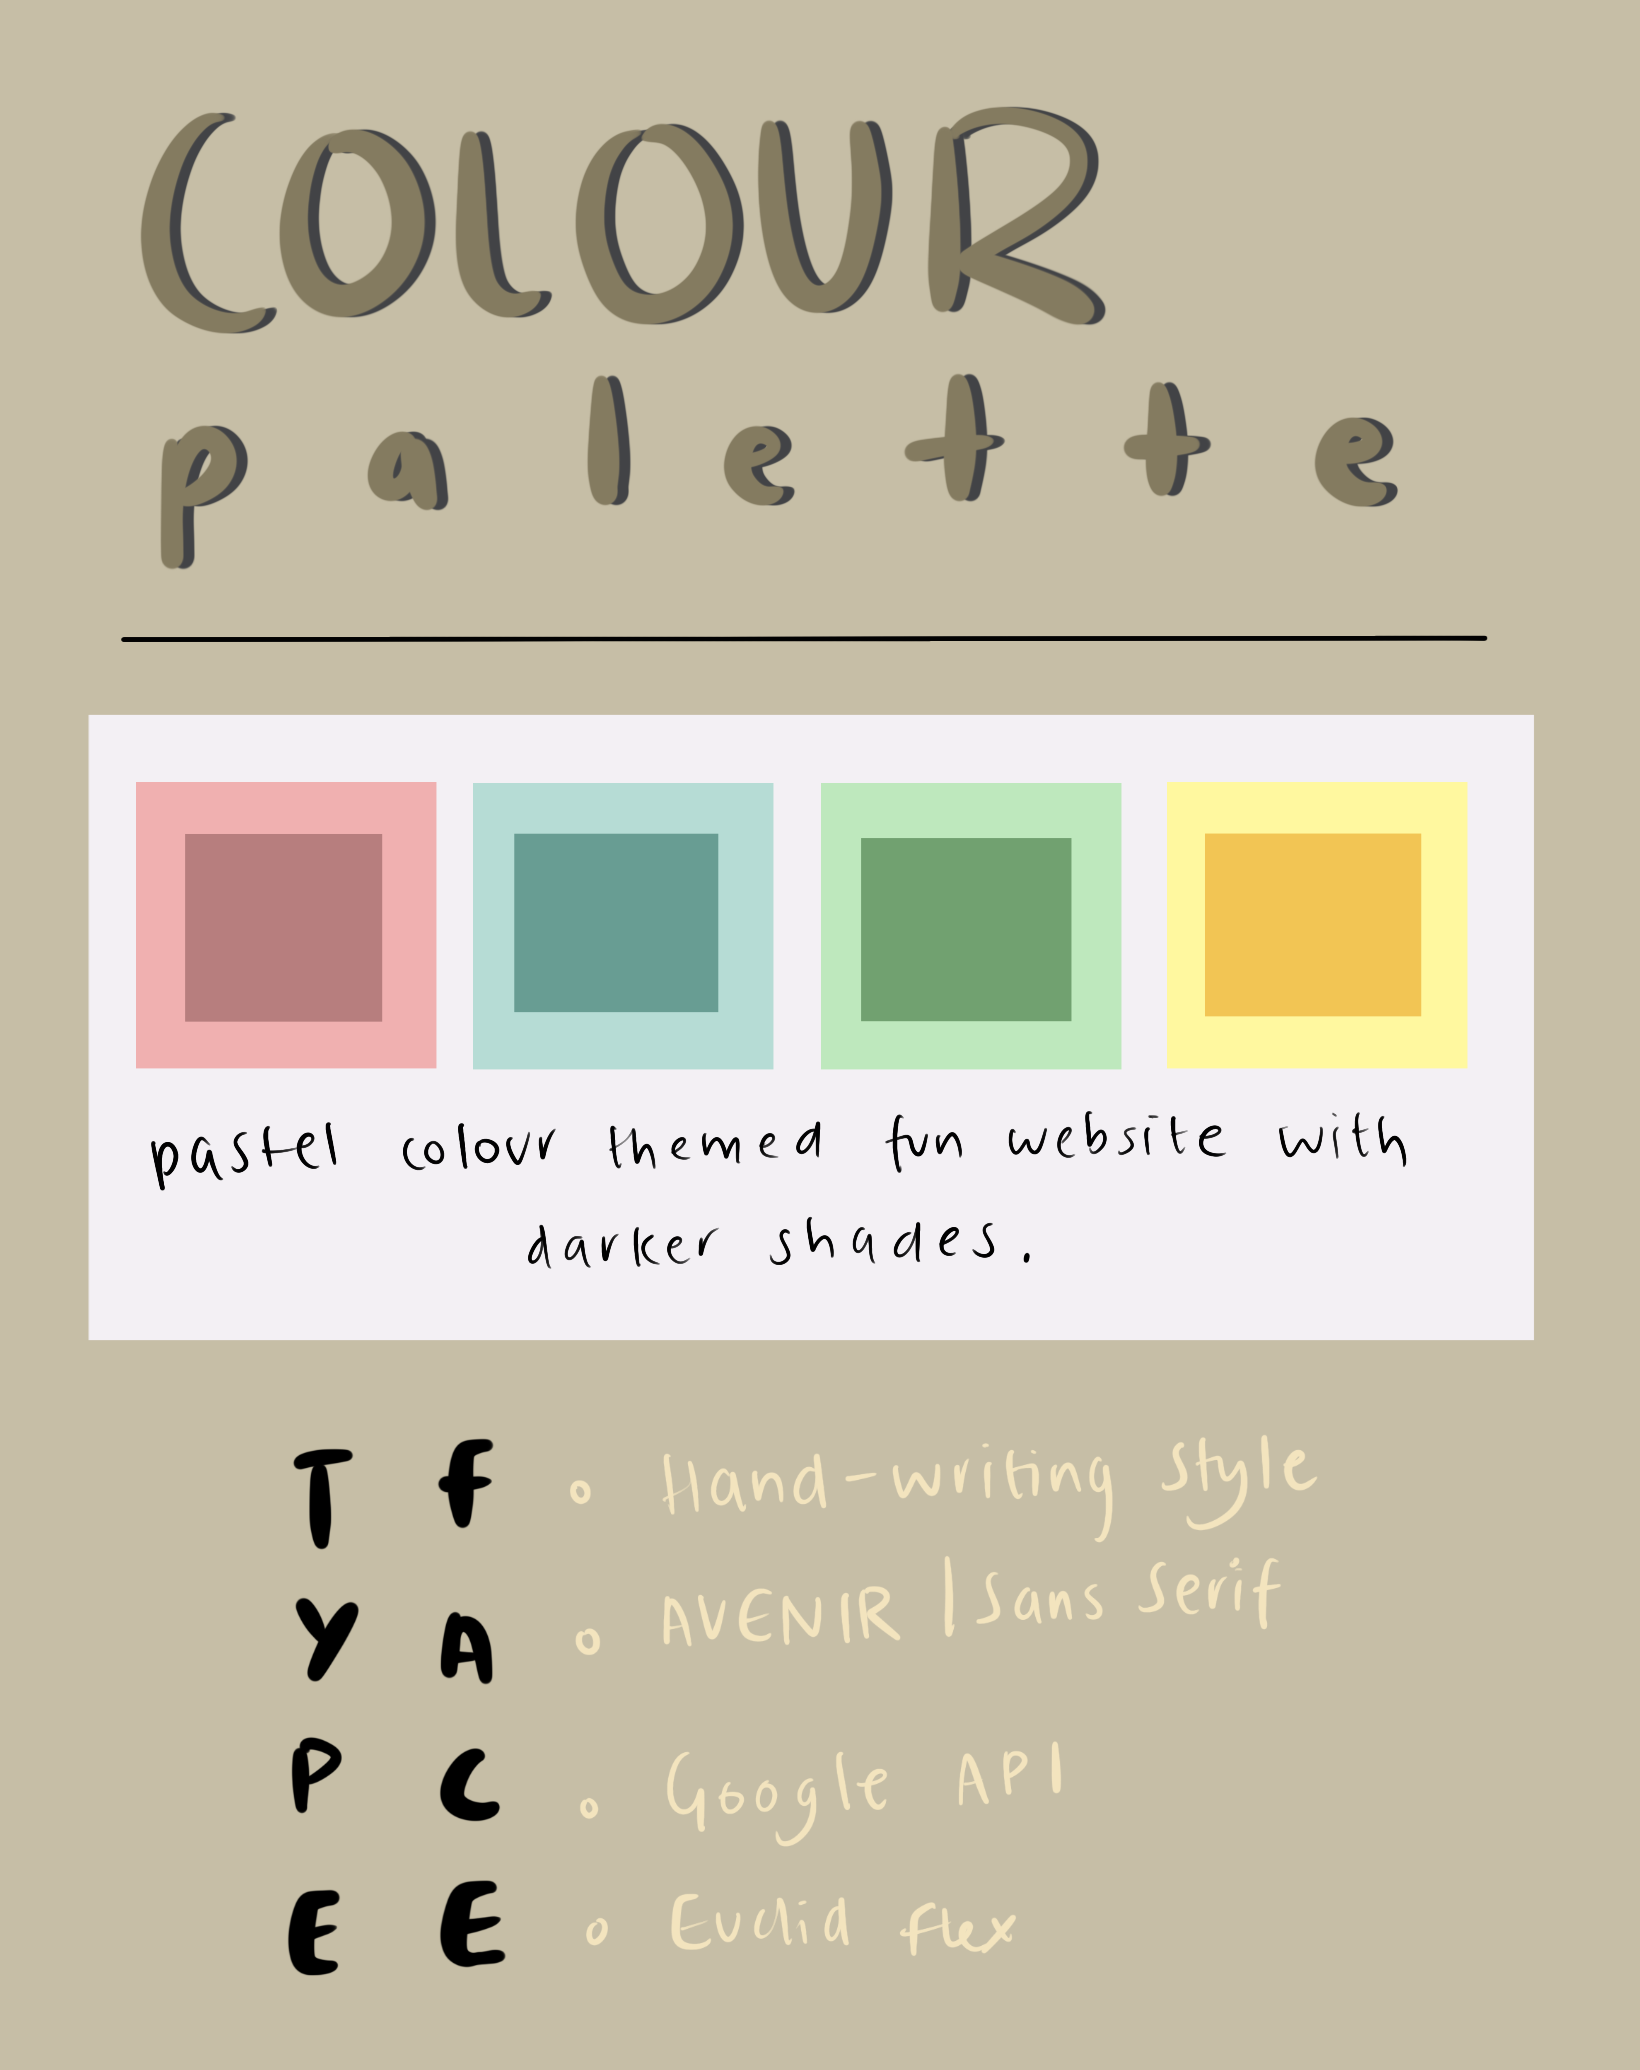 COLOUR
palette
pastel colour themed fun website with
darker shades.
TYPE
fACE
Hand-writing style
AVENIR | Sans Serif
Google API
Euclid flex